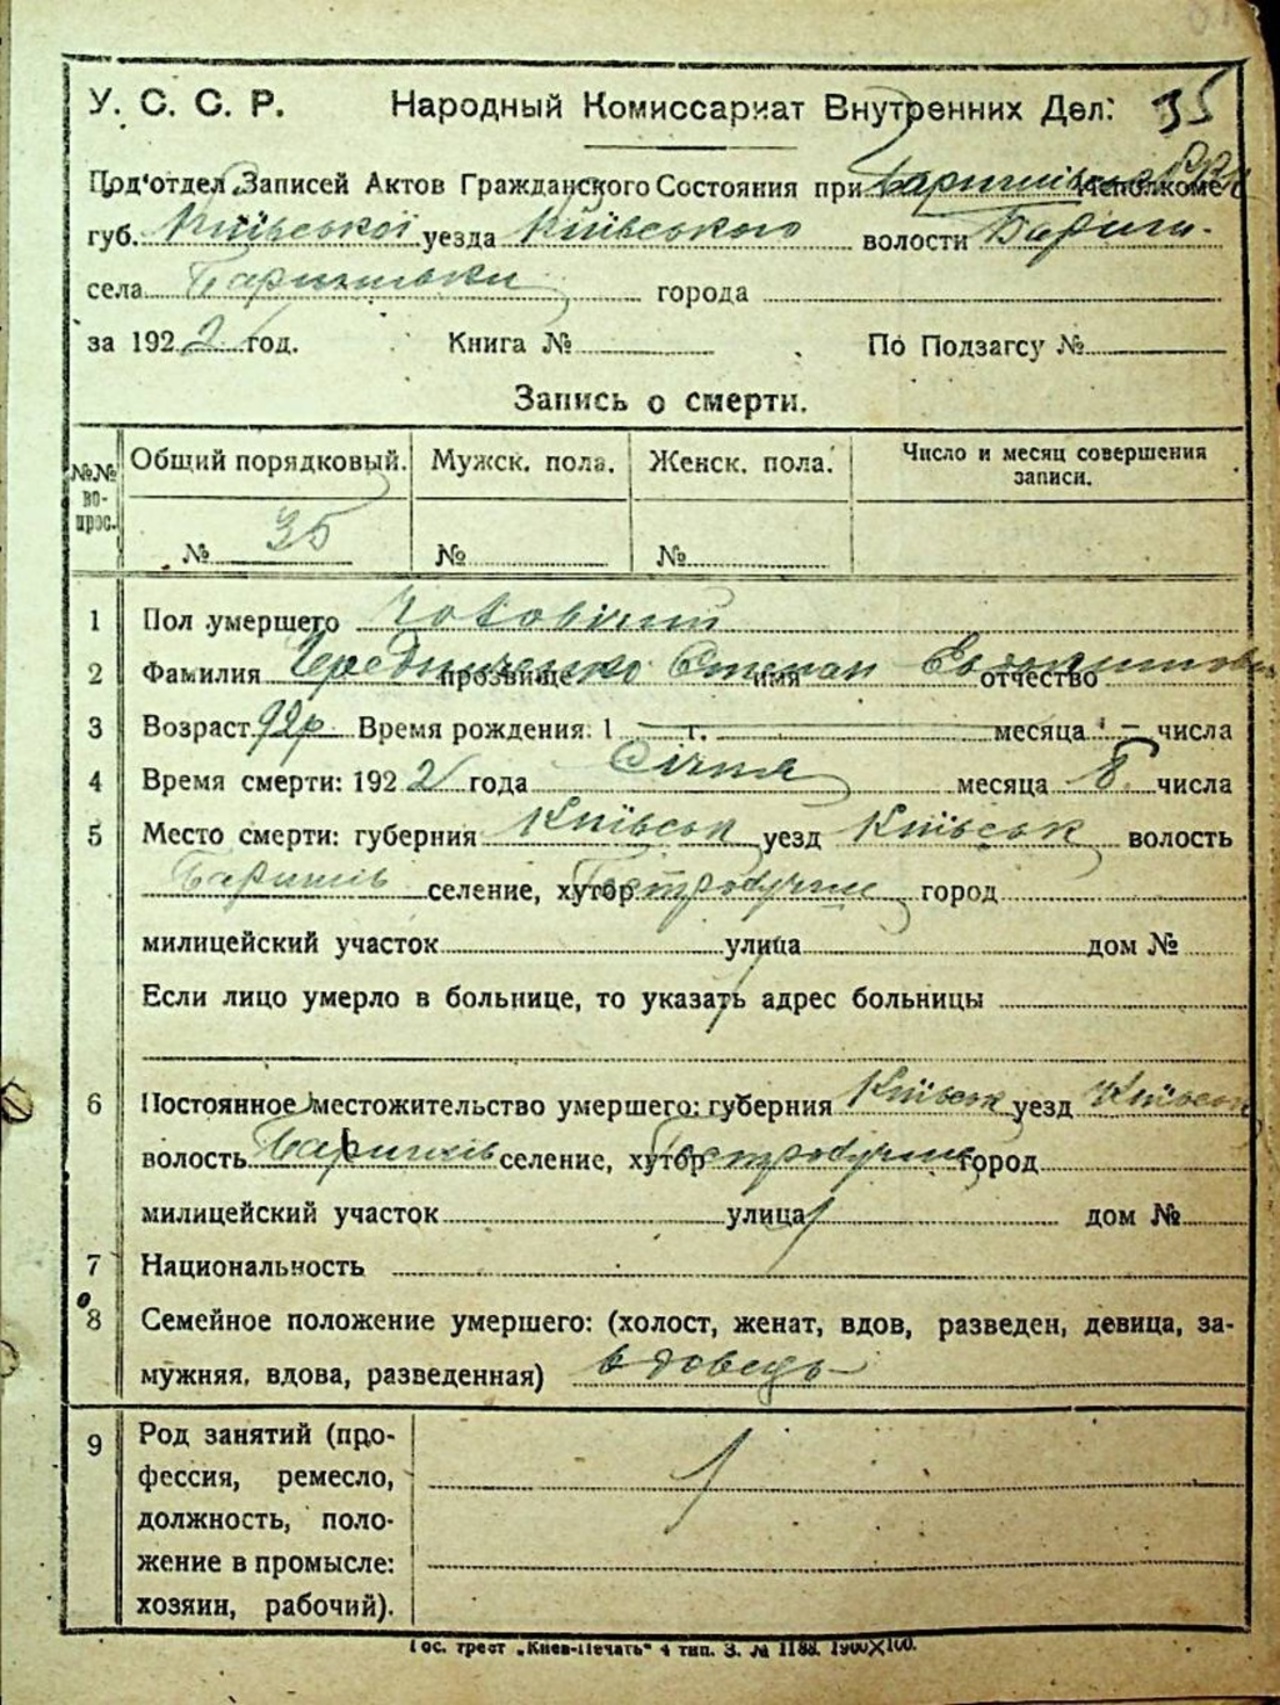 У. С. С. Р. Народный Комиссариат Внутренних Дел. 35
Под'отдел Записей Актов Гражданского Состояния при Исполкоме
губ. Київської уезда Київського волости Бориш-
села Баришівки города
за 1922 год. Книга № По Подзагсу №
Запись о смерти.
№№ вопрос. Общий порядковый. Мужск. пола. Женск. пола. Число и месяц совершения записи.
№ 35 № №
1 Пол умершего Чоловічий
2 Фамилия Чередниченко прозвище Степан имя Евдокимович отчество
3 Возраст 92р. Время рождения: 1 г. месяца числа
4 Время смерти: 1922 года Січня месяца 8 числа
5 Место смерти: губерния Київськ уезд Київськ волость
Баришів селение, хутор город
милицейский участок улица дом №
Если лицо умерло в больнице, то указать адрес больницы
6 Постоянное местожительство умершего: губерния Київськ уезд Київськ
волость Баришів селение, хутор город
милицейский участок улица дом №
7 Национальность
8 Семейное положение умершего: (холост, женат, вдов, разведен, девица, за-
мужняя, вдова, разведенная) вдовець
9 Род занятий (про-
фессия, ремесло,
должность, поло-
жение в промысле:
хозяин, рабочий).
Гос. трест „Киев-Печать" 4 тип. З. № 1188. 1900×100.